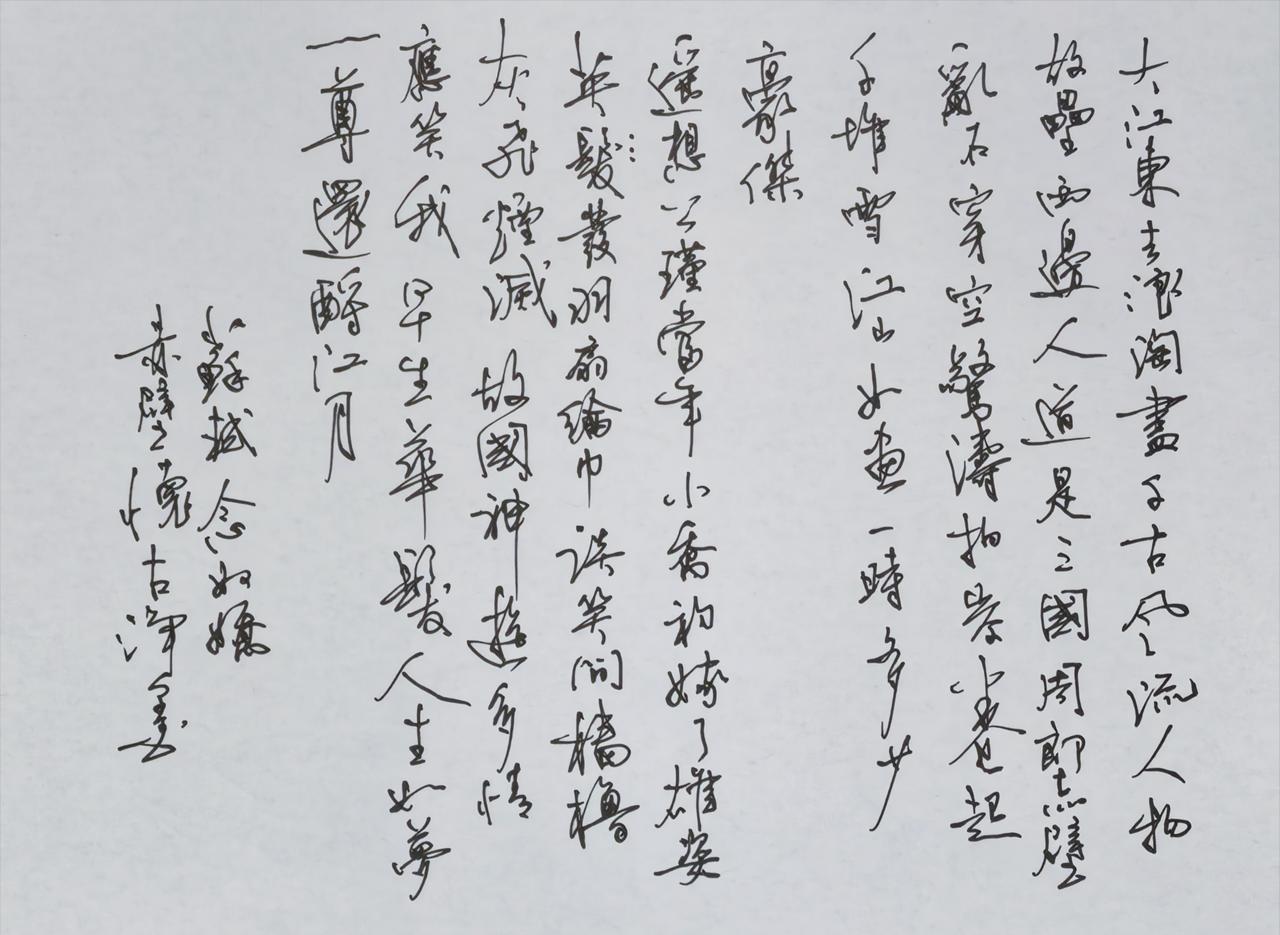 大江東去浪淘盡千古風流人物
故壘西邊人道是三國周郎赤壁
亂石穿空驚濤拍岸卷起
千堆雪江山如畫一時多少
豪傑
遥想公瑾當年小喬初嫁了雄姿
英髮發羽扇綸巾談笑間檣櫓
灰飛煙滅故國神遊多情
應笑我早生華髮人生如夢
一尊還酹江月
蘇軾念奴嬌
赤壁懷古